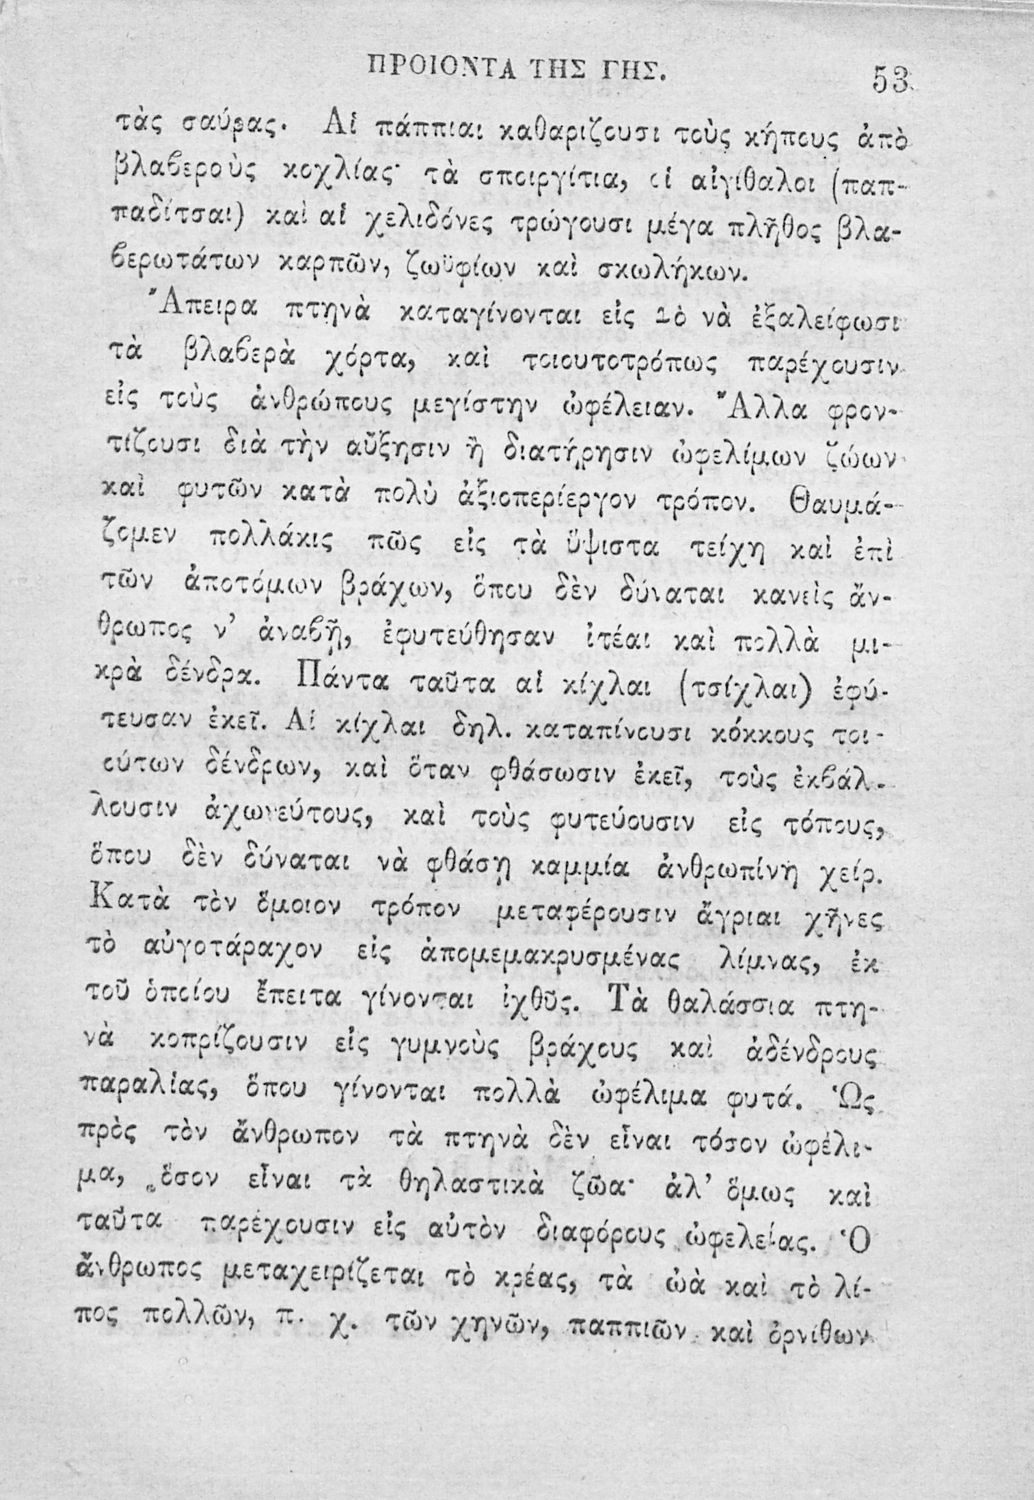 ΠΡΟΙΟΝΤΑ ΤΗΣ ΓΗΣ. 53
τὰς σαύρας. Αἱ πάππιαι καθαρίζουσι τοὺς κήπους ἀπὸ
βλαβεροὺς κοχλίας· τὰ σποιργίτια, οἱ αἰγίθαλοι (παπ-
παδίτσαι) καὶ αἱ χελιδόνες τρώγουσι μέγα πλῆθος βλα-
βερωτάτων καρπῶν, ζωϋφίων καὶ σκωλήκων.
Ἄπειρα πτηνὰ καταγίνονται εἰς τὸ νὰ ἐξαλείφωσι
τὰ βλαβερὰ χόρτα, καὶ τοιουτοτρόπως παρέχουσιν
εἰς τοὺς ἀνθρώπους μεγίστην ὠφέλειαν. Ἄλλα φρον-
τίζουσι διὰ τὴν αὔξησιν ἢ διατήρησιν ὠφελίμων ζώων
καὶ φυτῶν κατὰ πολὺ ἀξιοπερίεργον τρόπον. Θαυμά-
ζομεν πολλάκις πῶς εἰς τὰ ὕψιστα τείχη καὶ ἐπὶ
τῶν ἀποτόμων βράχων, ὅπου δὲν δύναται κανεὶς ἄν-
θρωπος ν’ ἀναβῇ, ἐφυτεύθησαν ἰτέαι καὶ πολλὰ μι-
κρὰ δένδρα. Πάντα ταῦτα αἱ κίχλαι (τσίχλαι) ἐφύ-
τευσαν ἐκεῖ. Αἱ κίχλαι δηλ. καταπίνουσι κόκκους τοι-
ούτων δένδρων, καὶ ὅταν φθάσωσιν ἐκεῖ, τοὺς ἐκβάλ-
λουσιν ἀχωνεύτους, καὶ τοὺς φυτεύουσιν εἰς τόπους,
ὅπου δὲν δύναται νὰ φθάσῃ καμμία ἀνθρωπίνη χείρ.
Κατὰ τὸν ὅμοιον τρόπον μεταφέρουσιν ἄγριαι χῆνες
τὸ αὐγοτάραχον εἰς ἀπομεμακρυσμένας λίμνας, ἐκ
τοῦ ὁποίου ἔπειτα γίνονται ἰχθῦς. Τὰ θαλάσσια πτη-
νὰ κοπρίζουσιν εἰς γυμνοὺς βράχους καὶ ἀδένδρους
παραλίας, ὅπου γίνονται πολλὰ ὠφέλιμα φυτά. Ὡς
πρὸς τὸν ἄνθρωπον τὰ πτηνὰ δὲν εἶναι τόσον ὠφέλι-
μα, ὅσον εἶναι τὰ θηλαστικὰ ζῶα· ἀλ’ ὅμως καὶ
ταῦτα παρέχουσιν εἰς αὐτὸν διαφόρους ὠφελείας. Ὁ
ἄνθρωπος μεταχειρίζεται τὸ κρέας, τὰ ὠὰ καὶ τὸ λί-
πος πολλῶν, π. χ. τῶν χηνῶν, παππιῶν καὶ ὀρνίθων